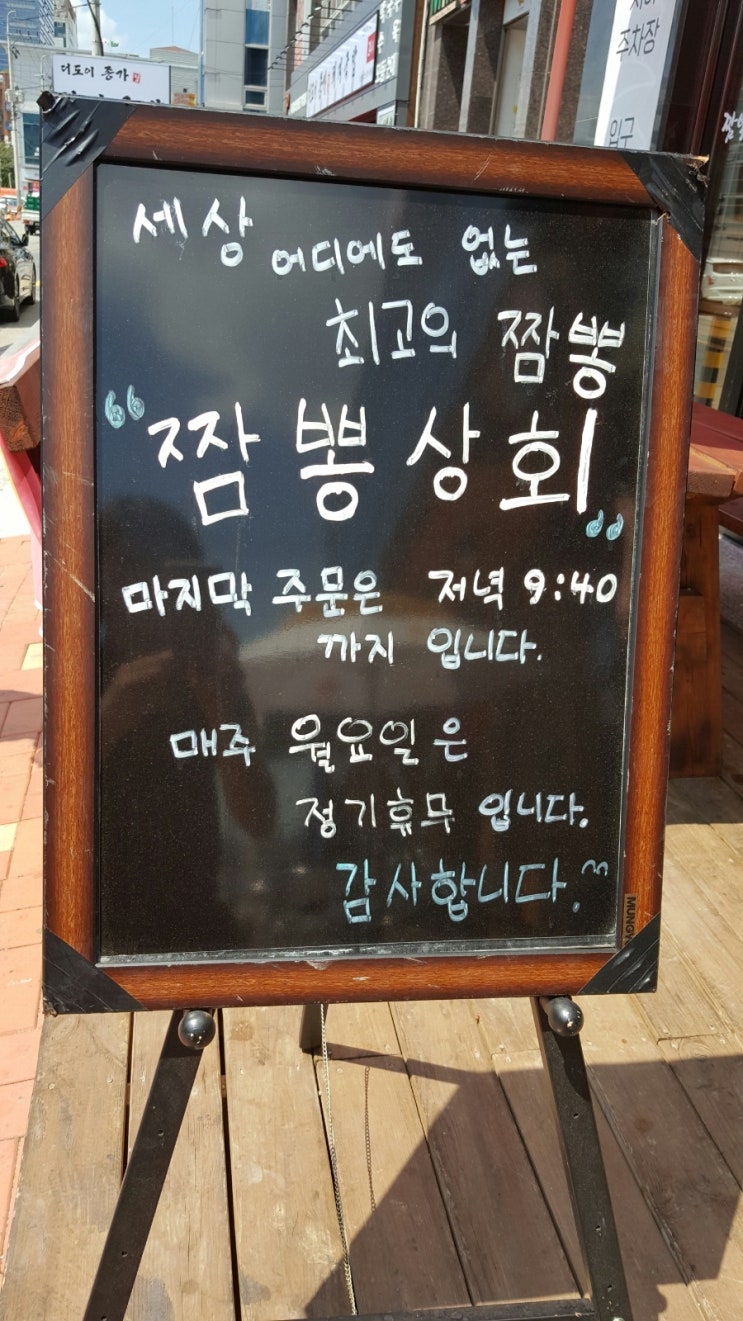 더도이 종가
주차장
입구
세상 어디에도 없는
최고의 짬뽕
“짬뽕상회”
마지막 주문은 저녁 9:40
까지 입니다.
매주 월요일은
정기휴무 입니다.
감사합니다.
MUNGYO